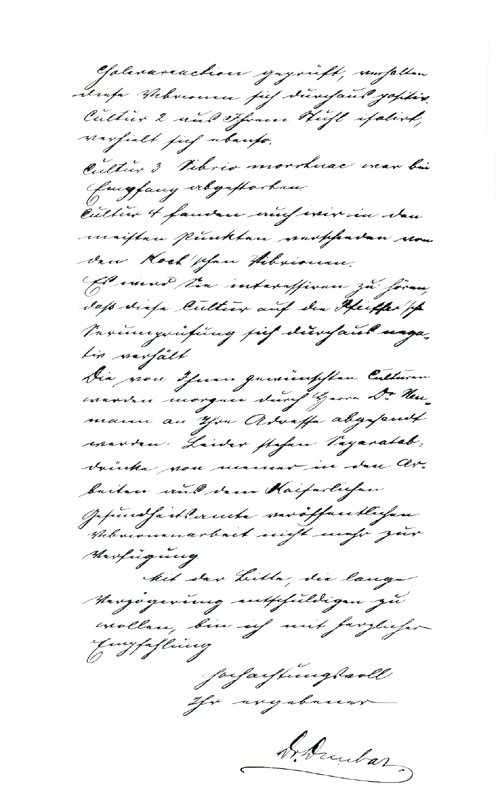 Cholerareaction geprüft, verhalten
diese Vibrionen sich durchaus positiv.
Cultur 2 aus Ihrem Stuhl isolirt,
verhielt sich ebenso.
Cultur 3 Vibrio war bei
Empfang abgestorben.
Cultur 4 fanden auch wir in den
meisten Punkten verschieden von
den Koch'schen Vibrionen.
Es wird Sie interessiren zu hören,
daß diese Cultur auf die Pfeiffer'sche
Serumprüfung sich durchaus nega-
tiv verhält
Die von Ihnen gewünschten Culturen
werden morgen durch Herrn Dr. Neu-
mann an Ihre Adresse abgesandt
werden. Leider stehen Separatab-
drücke von meiner in den Ar-
beiten aus dem Kaiserlichen
Gesundheitsamte veröffentlichten
Vibrionenarbeit nicht mehr zur
Verfügung
Mit der Bitte, die lange
Verzögerung entschuldigen zu
wollen, bin ich mit herzlicher
Empfehlung
hochachtungsvoll
Ihr ergebener
Dr. Dunbar.